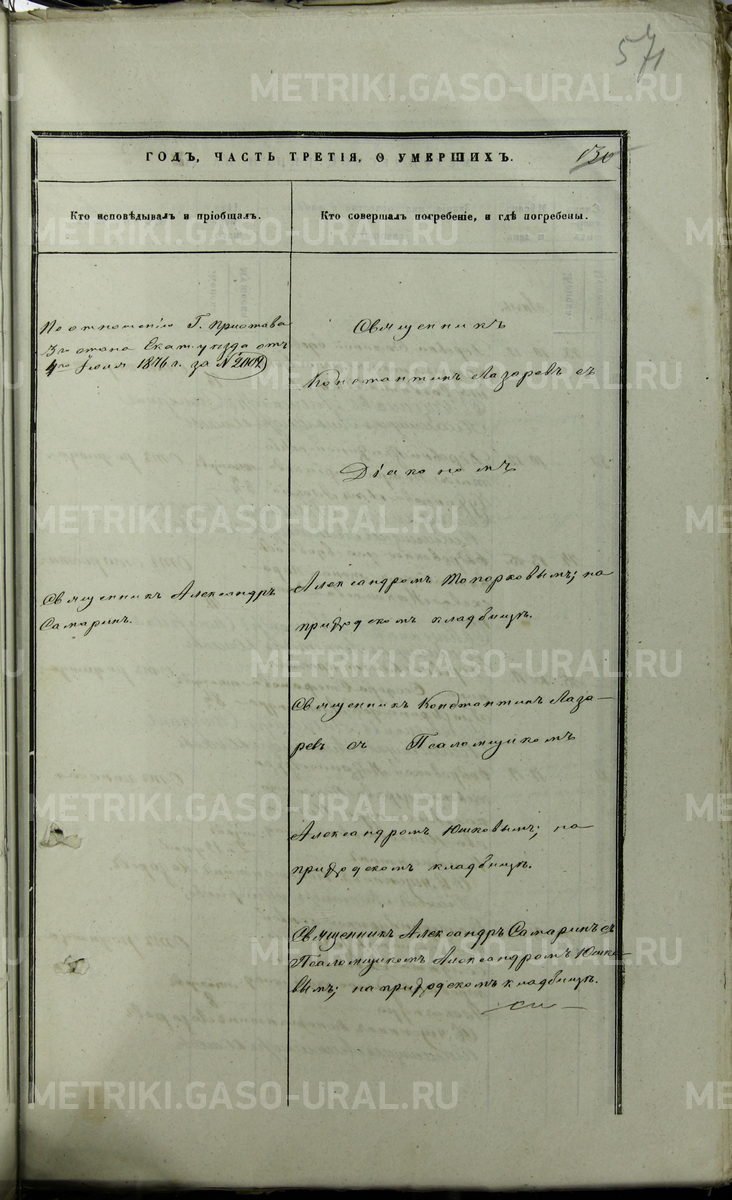 571
ГОДЪ, ЧАСТЬ ТРЕТІЯ, О УМЕРШИХЪ.
130
Кто исповѣдывалъ и пріобщалъ.
Кто совершалъ погребеніе, и гдѣ погребены.
По отношенію Г. Пристава
3го стана Екат. уѣзда отъ
4го Іюля 1876 г. за № 2002
Священникъ Александръ
Самаринъ.
Священникъ
Константинъ Лазаревъ съ
Діакономъ
Александромъ Топорковымъ; на
приходскомъ кладбищѣ.
Священникъ Константинъ Лаза-
ревъ съ Псаломщикомъ
Александромъ Юшковымъ; на
приходскомъ кладбищѣ.
Священникъ Александръ Самаринъ съ
Псаломщикомъ Александромъ Юшко-
вымъ; на приходскомъ кладбищѣ.
METRIKI.GASO-URAL.RU